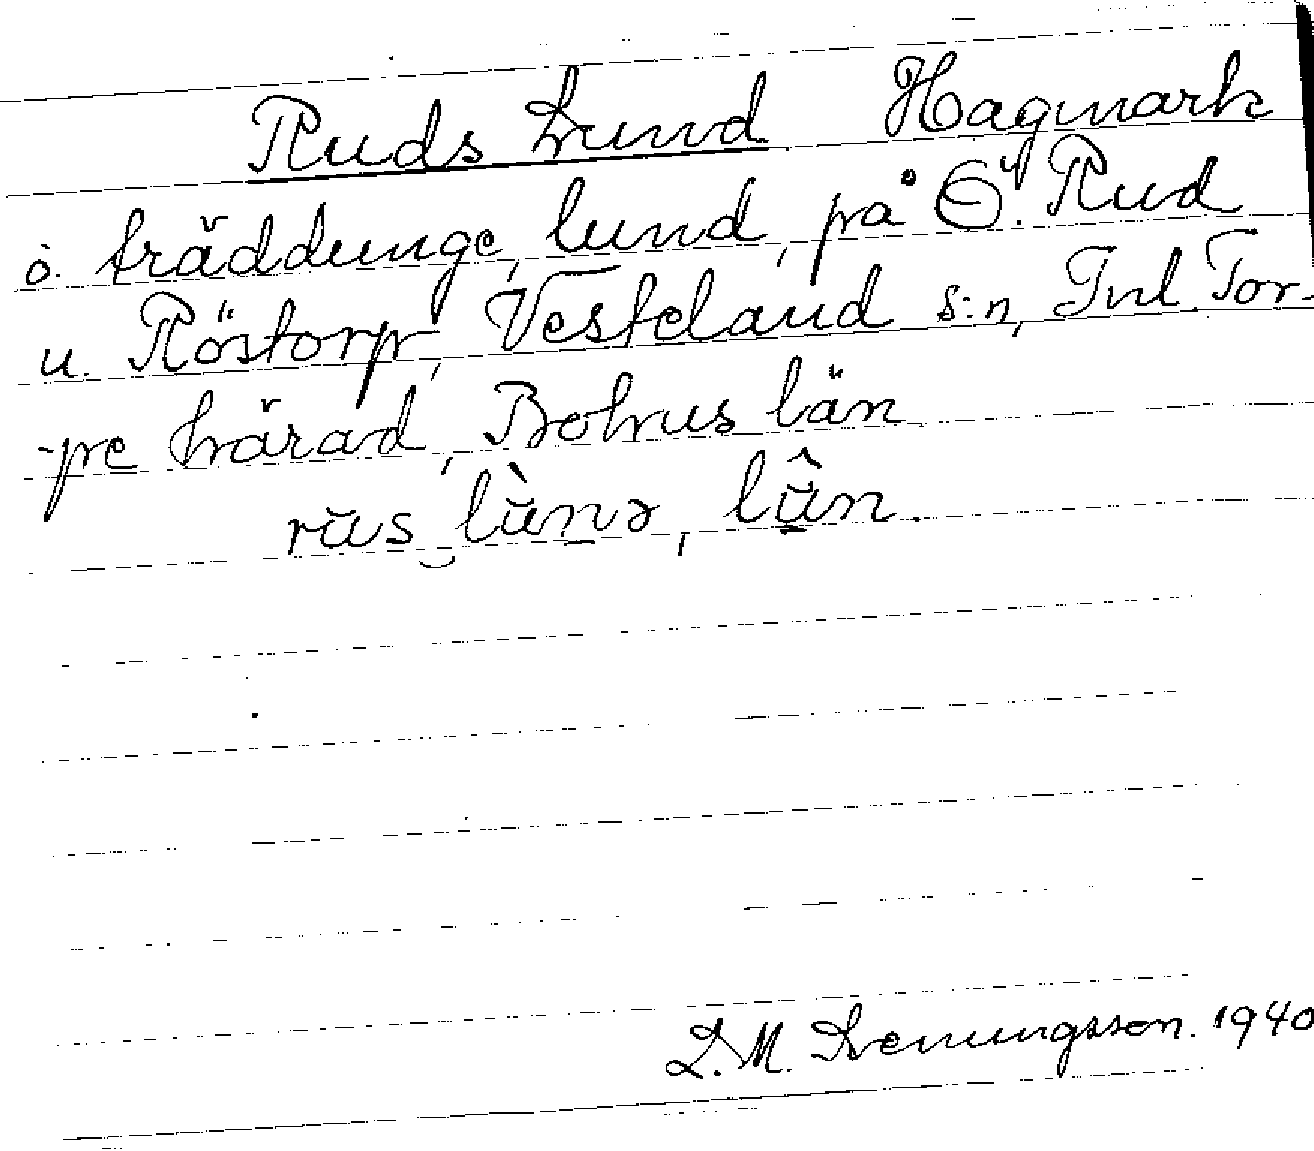 Ruds Lund Hagmark
o. träddunge, lund, på Ö. Rud
u. Röstorp, Vesteland s:n, Inl. Tor-
-pe härad, Bohus län
rūs lŭ̀nə, lŭ̂n.
L. M. Svenungsson. 1940